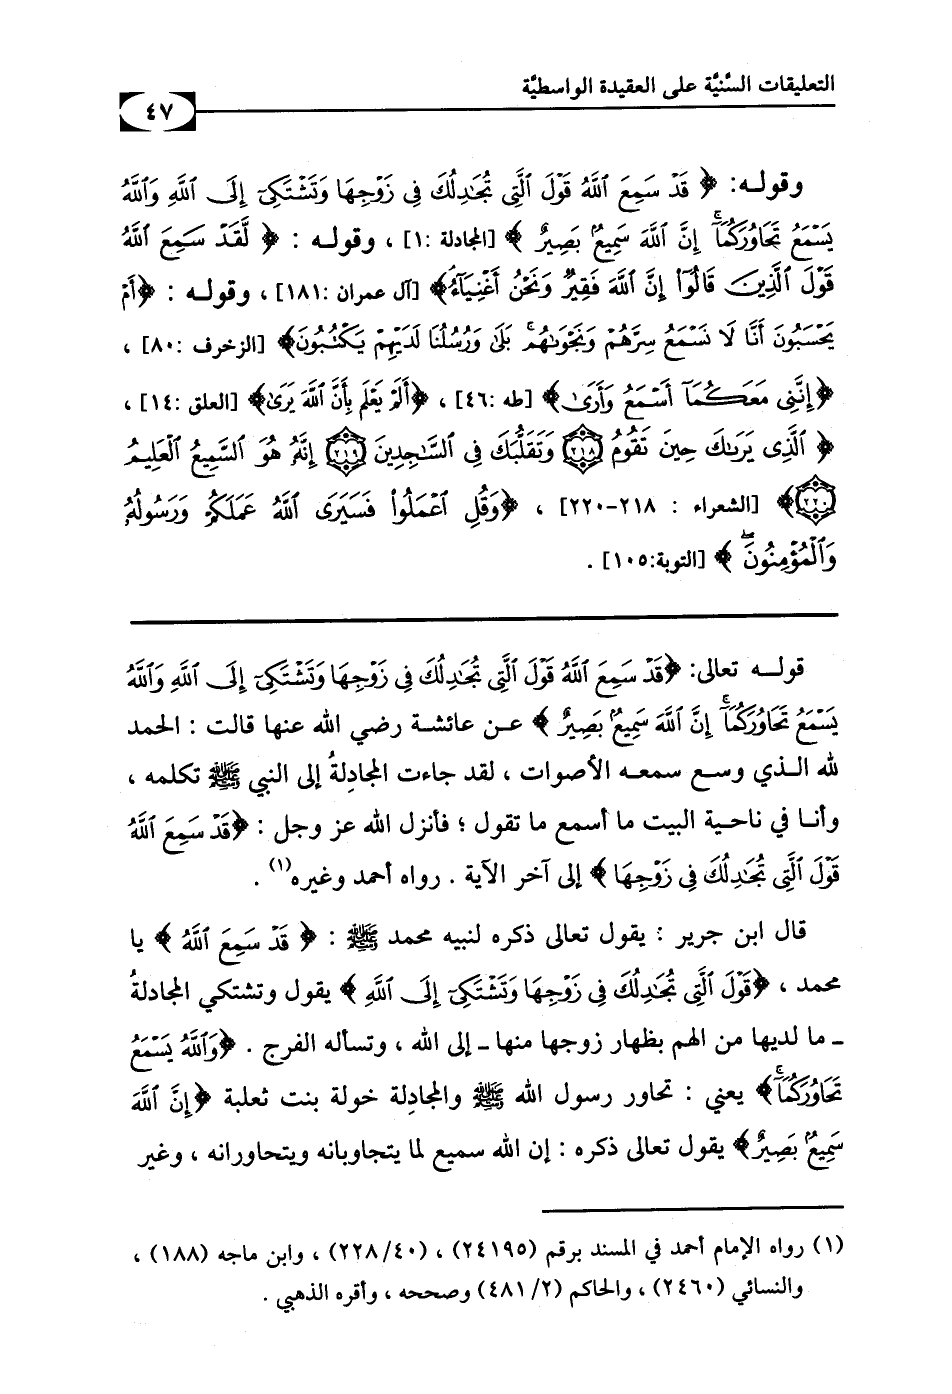 التعليقات السَّنيَّة على العقيدة الواسطيَّة
٤٧
وقولـه: ﴿ قَدْ سَمِعَ ٱللَّهُ قَوْلَ ٱلَّتِى تُجَٰدِلُكَ فِى زَوْجِهَا وَتَشْتَكِىٓ إِلَى ٱللَّهِ وَٱللَّهُ
يَسْمَعُ تَحَاوُرَكُمَآ ۚ إِنَّ ٱللَّهَ سَمِيعٌۢ بَصِيرٌ ﴾ [المجادلة :١] ، وقولـه : ﴿ لَّقَدْ سَمِعَ ٱللَّهُ
قَوْلَ ٱلَّذِينَ قَالُوٓا۟ إِنَّ ٱللَّهَ فَقِيرٌ وَنَحْنُ أَغْنِيَآءُ ﴾ [آل عمران :١٨١] ، وقولـه : ﴿أَمْ
يَحْسَبُونَ أَنَّا لَا نَسْمَعُ سِرَّهُمْ وَنَجْوَىٰهُم ۚ بَلَىٰ وَرُسُلُنَا لَدَيْهِمْ يَكْتُبُونَ﴾ [الزخرف :٨٠] ،
﴿إِنَّنِى مَعَكُمَآ أَسْمَعُ وَأَرَىٰ﴾ [طه :٤٦] ، ﴿أَلَمْ يَعْلَم بِأَنَّ ٱللَّهَ يَرَىٰ﴾ [العلق :١٤] ،
﴿ ٱلَّذِى يَرَىٰكَ حِينَ تَقُومُ ٢١٨ وَتَقَلُّبَكَ فِى ٱلسَّٰجِدِينَ ٢١٩ إِنَّهُۥ هُوَ ٱلسَّمِيعُ ٱلْعَلِيمُ
٢٢٠﴾ [الشعراء : ٢١٨-٢٢٠] ، ﴿وَقُلِ ٱعْمَلُوا۟ فَسَيَرَى ٱللَّهُ عَمَلَكُمْ وَرَسُولُهُۥ
وَٱلْمُؤْمِنُونَ ۖ ﴾ [التوبة:١٠٥] .
قولـه تعالى: ﴿قَدْ سَمِعَ ٱللَّهُ قَوْلَ ٱلَّتِى تُجَٰدِلُكَ فِى زَوْجِهَا وَتَشْتَكِىٓ إِلَى ٱللَّهِ وَٱللَّهُ
يَسْمَعُ تَحَاوُرَكُمَآ ۚ إِنَّ ٱللَّهَ سَمِيعٌۢ بَصِيرٌ ﴾ عـن عائشـة رضي الله عنها قالت : الحمد
لله الـذي وسـع سمعـه الأصوات ، لقد جاءت المجادِلةُ إلى النبي ﷺ تكلمه ،
وأنـا في ناحيـة البيت ما أسمع ما تقول ؛ فأنزل الله عز وجل : ﴿قَدْ سَمِعَ ٱللَّهُ
قَوْلَ ٱلَّتِى تُجَٰدِلُكَ فِى زَوْجِهَا ﴾ إلى آخر الآية . رواه أحمد وغيره(١) .
قال ابن جرير : يقول تعالى ذكره لنبيه محمد ﷺ : ﴿ قَدْ سَمِعَ ٱللَّهُ ﴾ يا
محمد ، ﴿قَوْلَ ٱلَّتِى تُجَٰدِلُكَ فِى زَوْجِهَا وَتَشْتَكِىٓ إِلَى ٱللَّهِ ﴾ يقول وتشتكي المجادلةُ
ـ ما لديها من الهم بظهار زوجها منها ـ إلى الله ، وتسأله الفرج . ﴿وَٱللَّهُ يَسْمَعُ
تَحَاوُرَكُمَآ ۚ﴾ يعني : تحاور رسول الله ﷺ والمجادِلة خولة بنت ثعلبة ﴿إِنَّ ٱللَّهَ
سَمِيعٌۢ بَصِيرٌ﴾ يقول تعالى ذكره : إن الله سميع لما يتجاوبانه ويتحاورانه ، وغير
(١) رواه الإمام أحمد في المسند برقم (٢٤١٩٥) ، (٢٢٨/٤٠) ، وابن ماجه (١٨٨) ،
والنسائي (٢٤٦٠) ، والحاكم (٤٨١/٢) وصححه ، وأقره الذهبي .